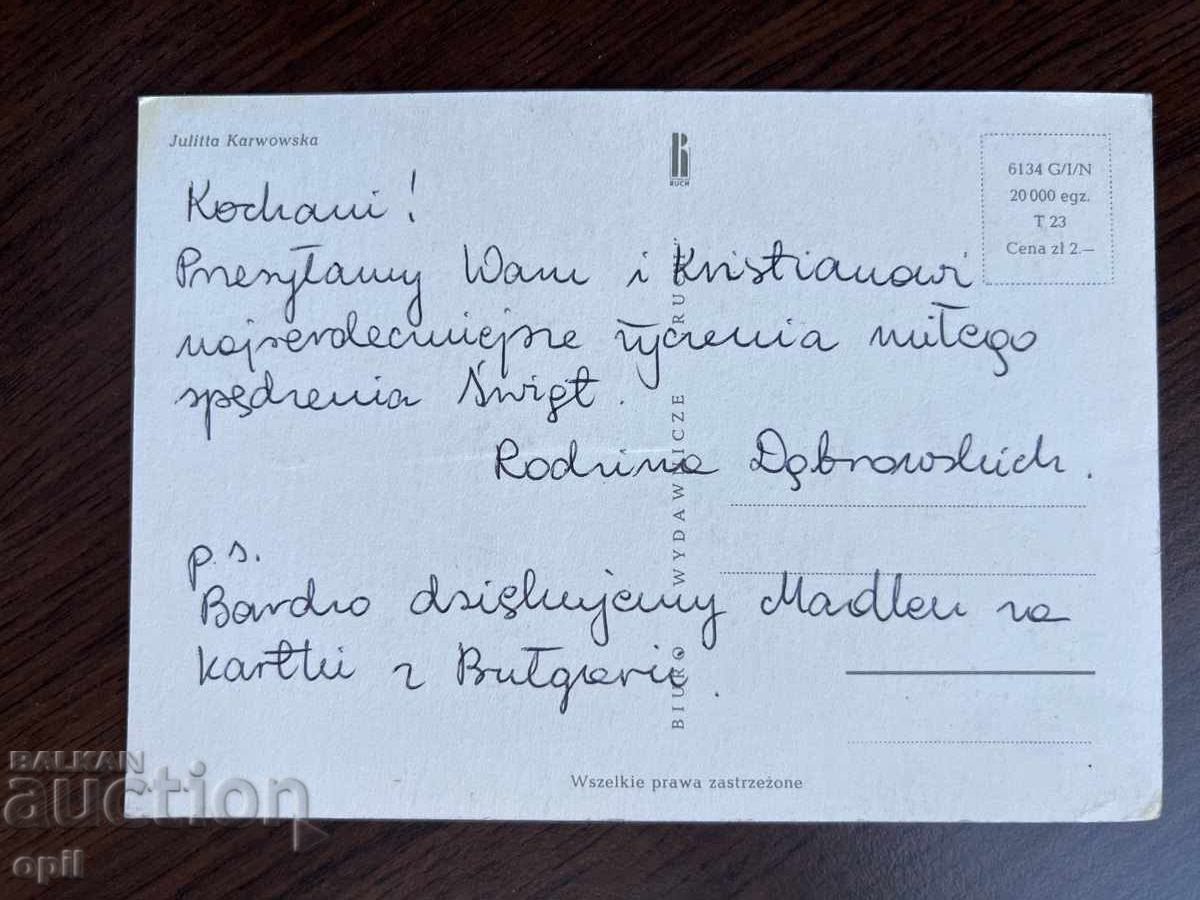 Julitta Karwowska
R
RUCH
6134 G/I/N
20 000 egz.
T 23
Cena zł 2.—
Kochani!
Przesyłamy Wam i Kristianowi
najserdeczniejsze życzenia miłego
spędzenia Świąt.
Rodzina Dąbrowskich.
p.s.
Bardzo dziękujemy Madlen za
kartki z Bułgarii.
BIURO WYDAWNICZE „RUCH”
Wszelkie prawa zastrzeżone
BALKAN
auction
opil